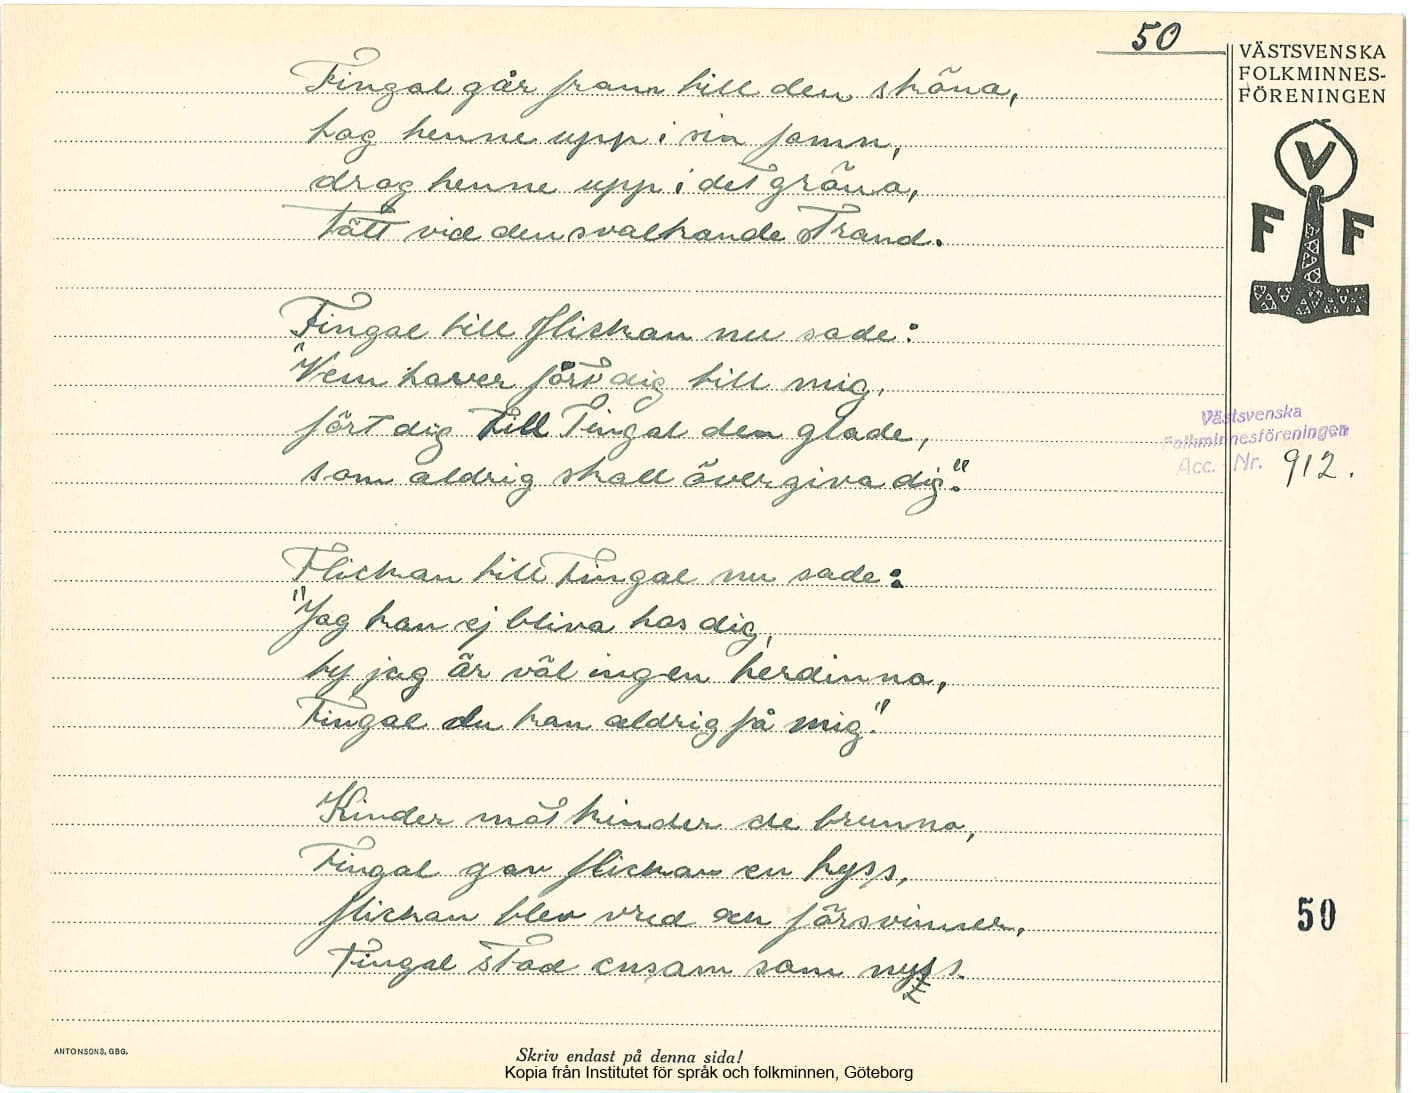 50
VÄSTSVENSKA
FOLKMINNES-
FÖRENINGEN
V
F F
Fingal går fram till den sköna,
tog henne upp i sin famn,
drog henne upp i det gröna,
tätt vid den svalkande strand.
Fingal till flickan nu sade:
"Vem haver fört dig till mig,
fört dig till Fingal den glade,
som aldrig skall övergiva dig."
Västsvenska
Folkminnesföreningen
Acc. Nr. 912.
Flickan till Fingal nu sade:
"Jag kan ej bliva hos dig,
ty jag är väl ingen herdinna,
Fingal du kan aldrig få mig."
Kinder mot kinder de brunno,
Fingal gav flickan en kyss,
flickan blev vred och försvinner,
Fingal stod ensam som nyss.
50
ANTONSONS, GBG.
Skriv endast på denna sida!
Kopia från Institutet för språk och folkminnen, Göteborg